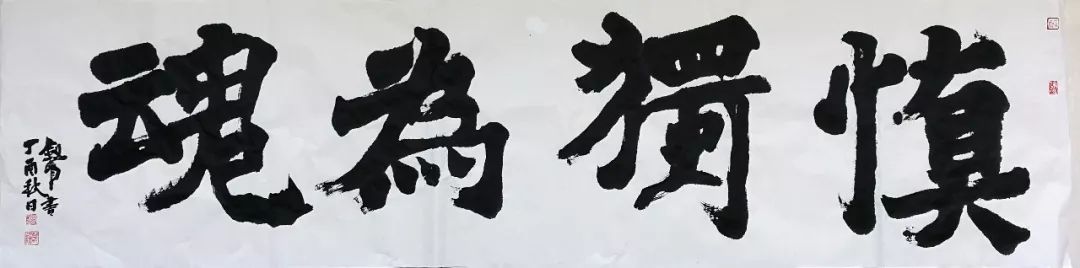 慎獨為魂
書
丁酉秋日